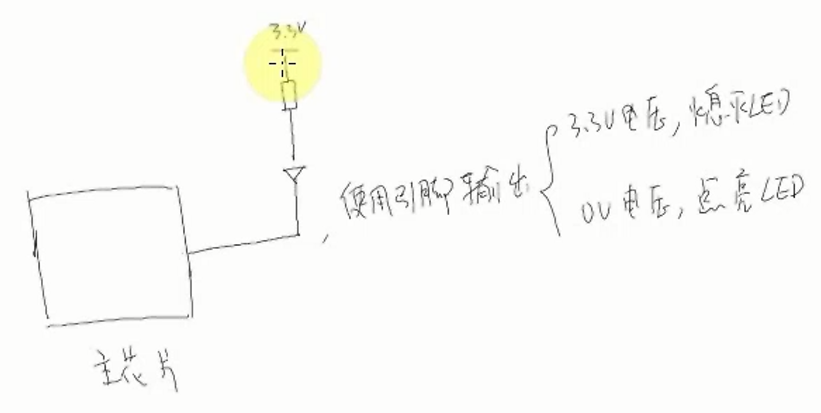 3.3V
使用引脚输出
3.3V电压,熄灭LED
0V电压,点亮LED
主芯片